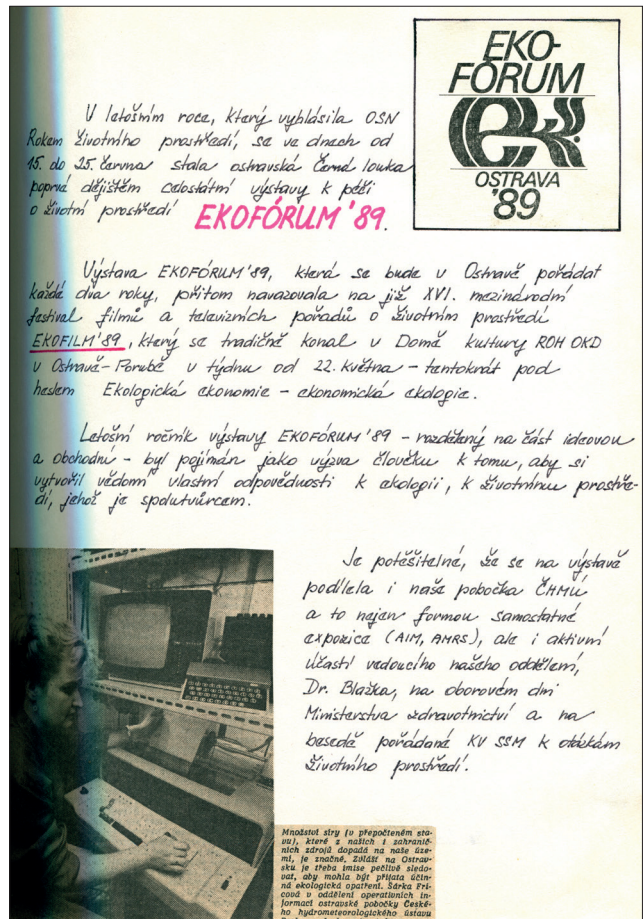 EKO-
FÓRUM
OSTRAVA
'89
V letošním roce, který vyhlásila OSN
Rokem životního prostředí, se ve dnech od
15. do 25. června stala ostravská Černá louka
poprvé dějištěm celostátní výstavy k péči
o životní prostředí EKOFÓRUM '89.
Výstava EKOFÓRUM '89, která se bude v Ostravě pořádat
každé dva roky, přitom navazovala na již XVI. mezinárodní
festival filmů a televizních pořadů o životním prostředí
EKOFILM '89, který se tradičně konal v Domě kultury ROH OKD
v Ostravě-Porubě v týdnu od 22. května - tentokrát pod
heslem Ekologická ekonomie - ekonomická ekologie.
Letošní ročník výstavy EKOFÓRUM '89 - rozdělený na část ideovou
a obchodní - byl pojímán jako výzva člověku k tomu, aby si
vytvořil vědomí vlastní odpovědnosti k ekologii, k životnímu prostře-
dí, jehož je spolutvůrcem.
Je potěšitelné, že se na výstavě
podílela i naše pobočka ČHMÚ
a to nejen formou samostatné
expozice (AIM, AMRS), ale i aktivní
účastí vedoucího našeho oddělení,
Dr. Blažka, na oborovém dni
Ministerstva zdravotnictví a na
besedě pořádané KV SSM k otázkám
životního prostředí.
Množství síry (v přepočteném sta-
vu), které z našich i zahranič-
ních zdrojů dopadá na naše úze-
mí, je značné. Zvlášť na Ostrav-
sku je třeba imise pečlivě sledo-
vat, aby mohla být přijata účin-
ná ekologická opatření. Šárka Fri-
cová v oddělení operativních in-
formací ostravské pobočky České-
ho hydrometeorologického ústavu